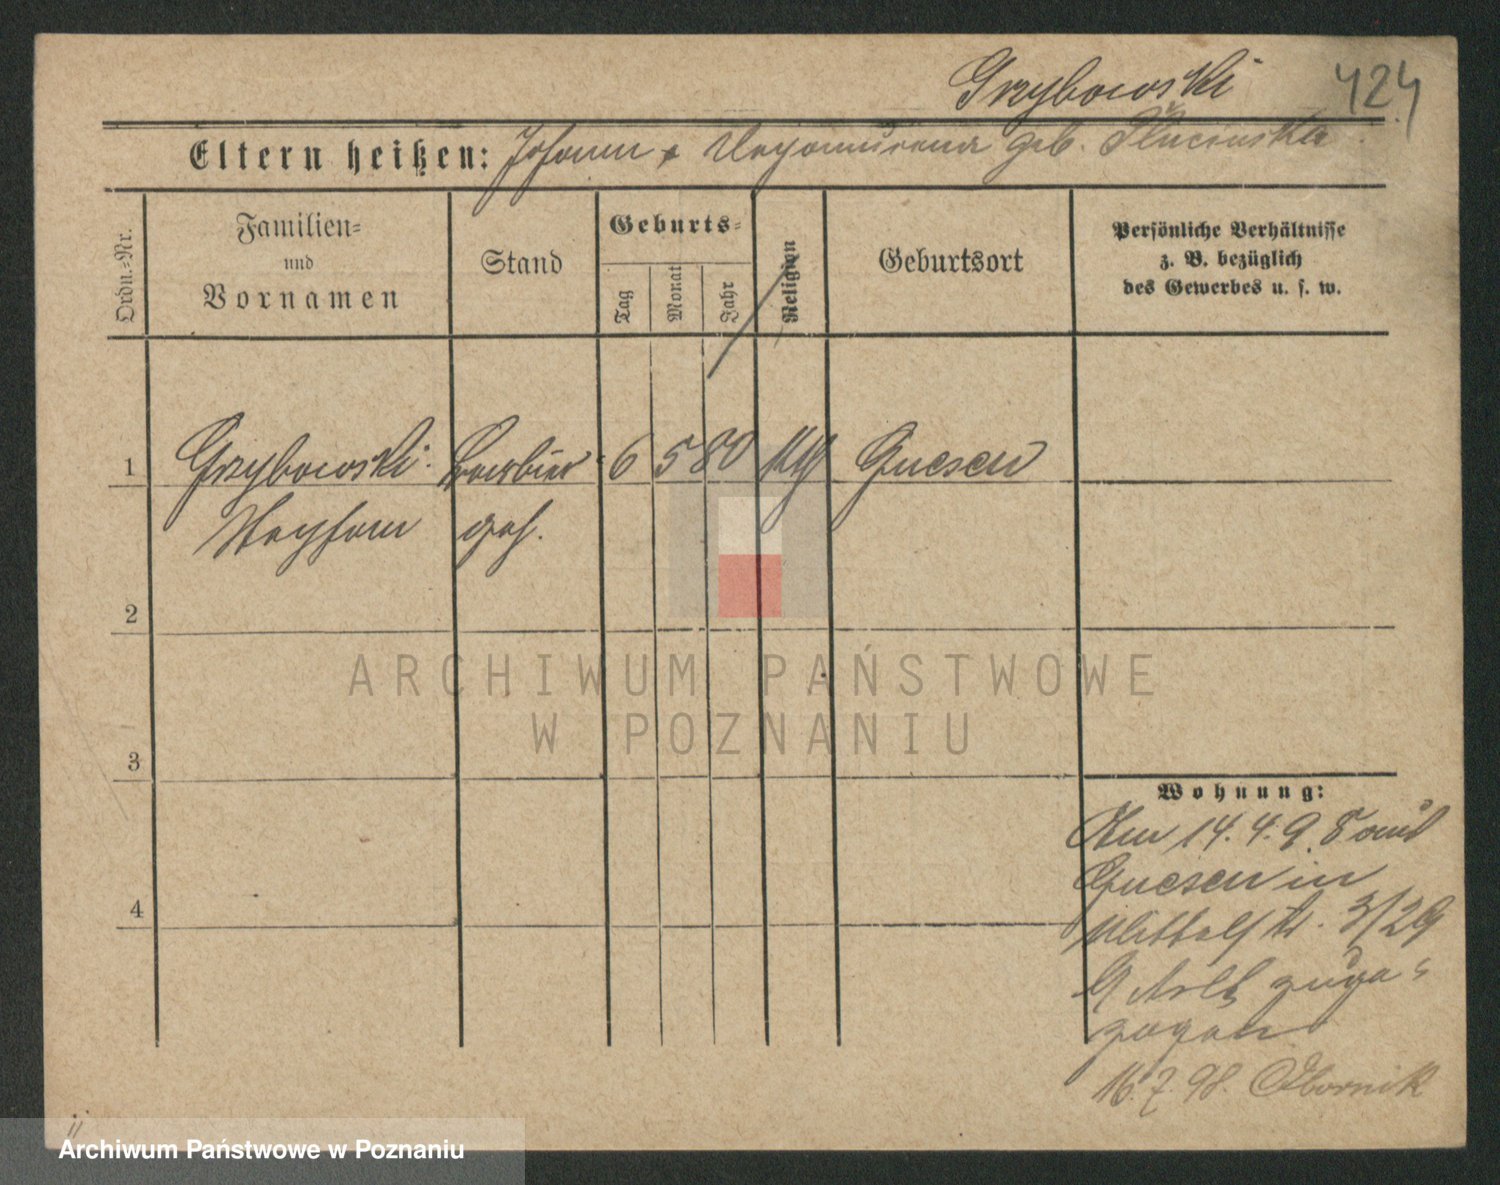 Grzybowski 424
Eltern heißen: Johann geb.
Ordn.-Nr.
Familien-
und
Vornamen
Stand
Geburts-
Tag
Monat
Jahr
Religion
Geburtsort
Persönliche Verhältnisse
z. B. bezüglich
des Gewerbes u. s. w.
1 Grzybowski Barbier 6 5 80 kth Gnesen
Stephan geh.
2
3
4
Wohnung:
Am 14.4.98 aus
Gnesen in
3/29
zuge-
zogen
16.7.98. Obornik
ARCHIWUM PAŃSTWOWE
W POZNANIU
Archiwum Państwowe w Poznaniu